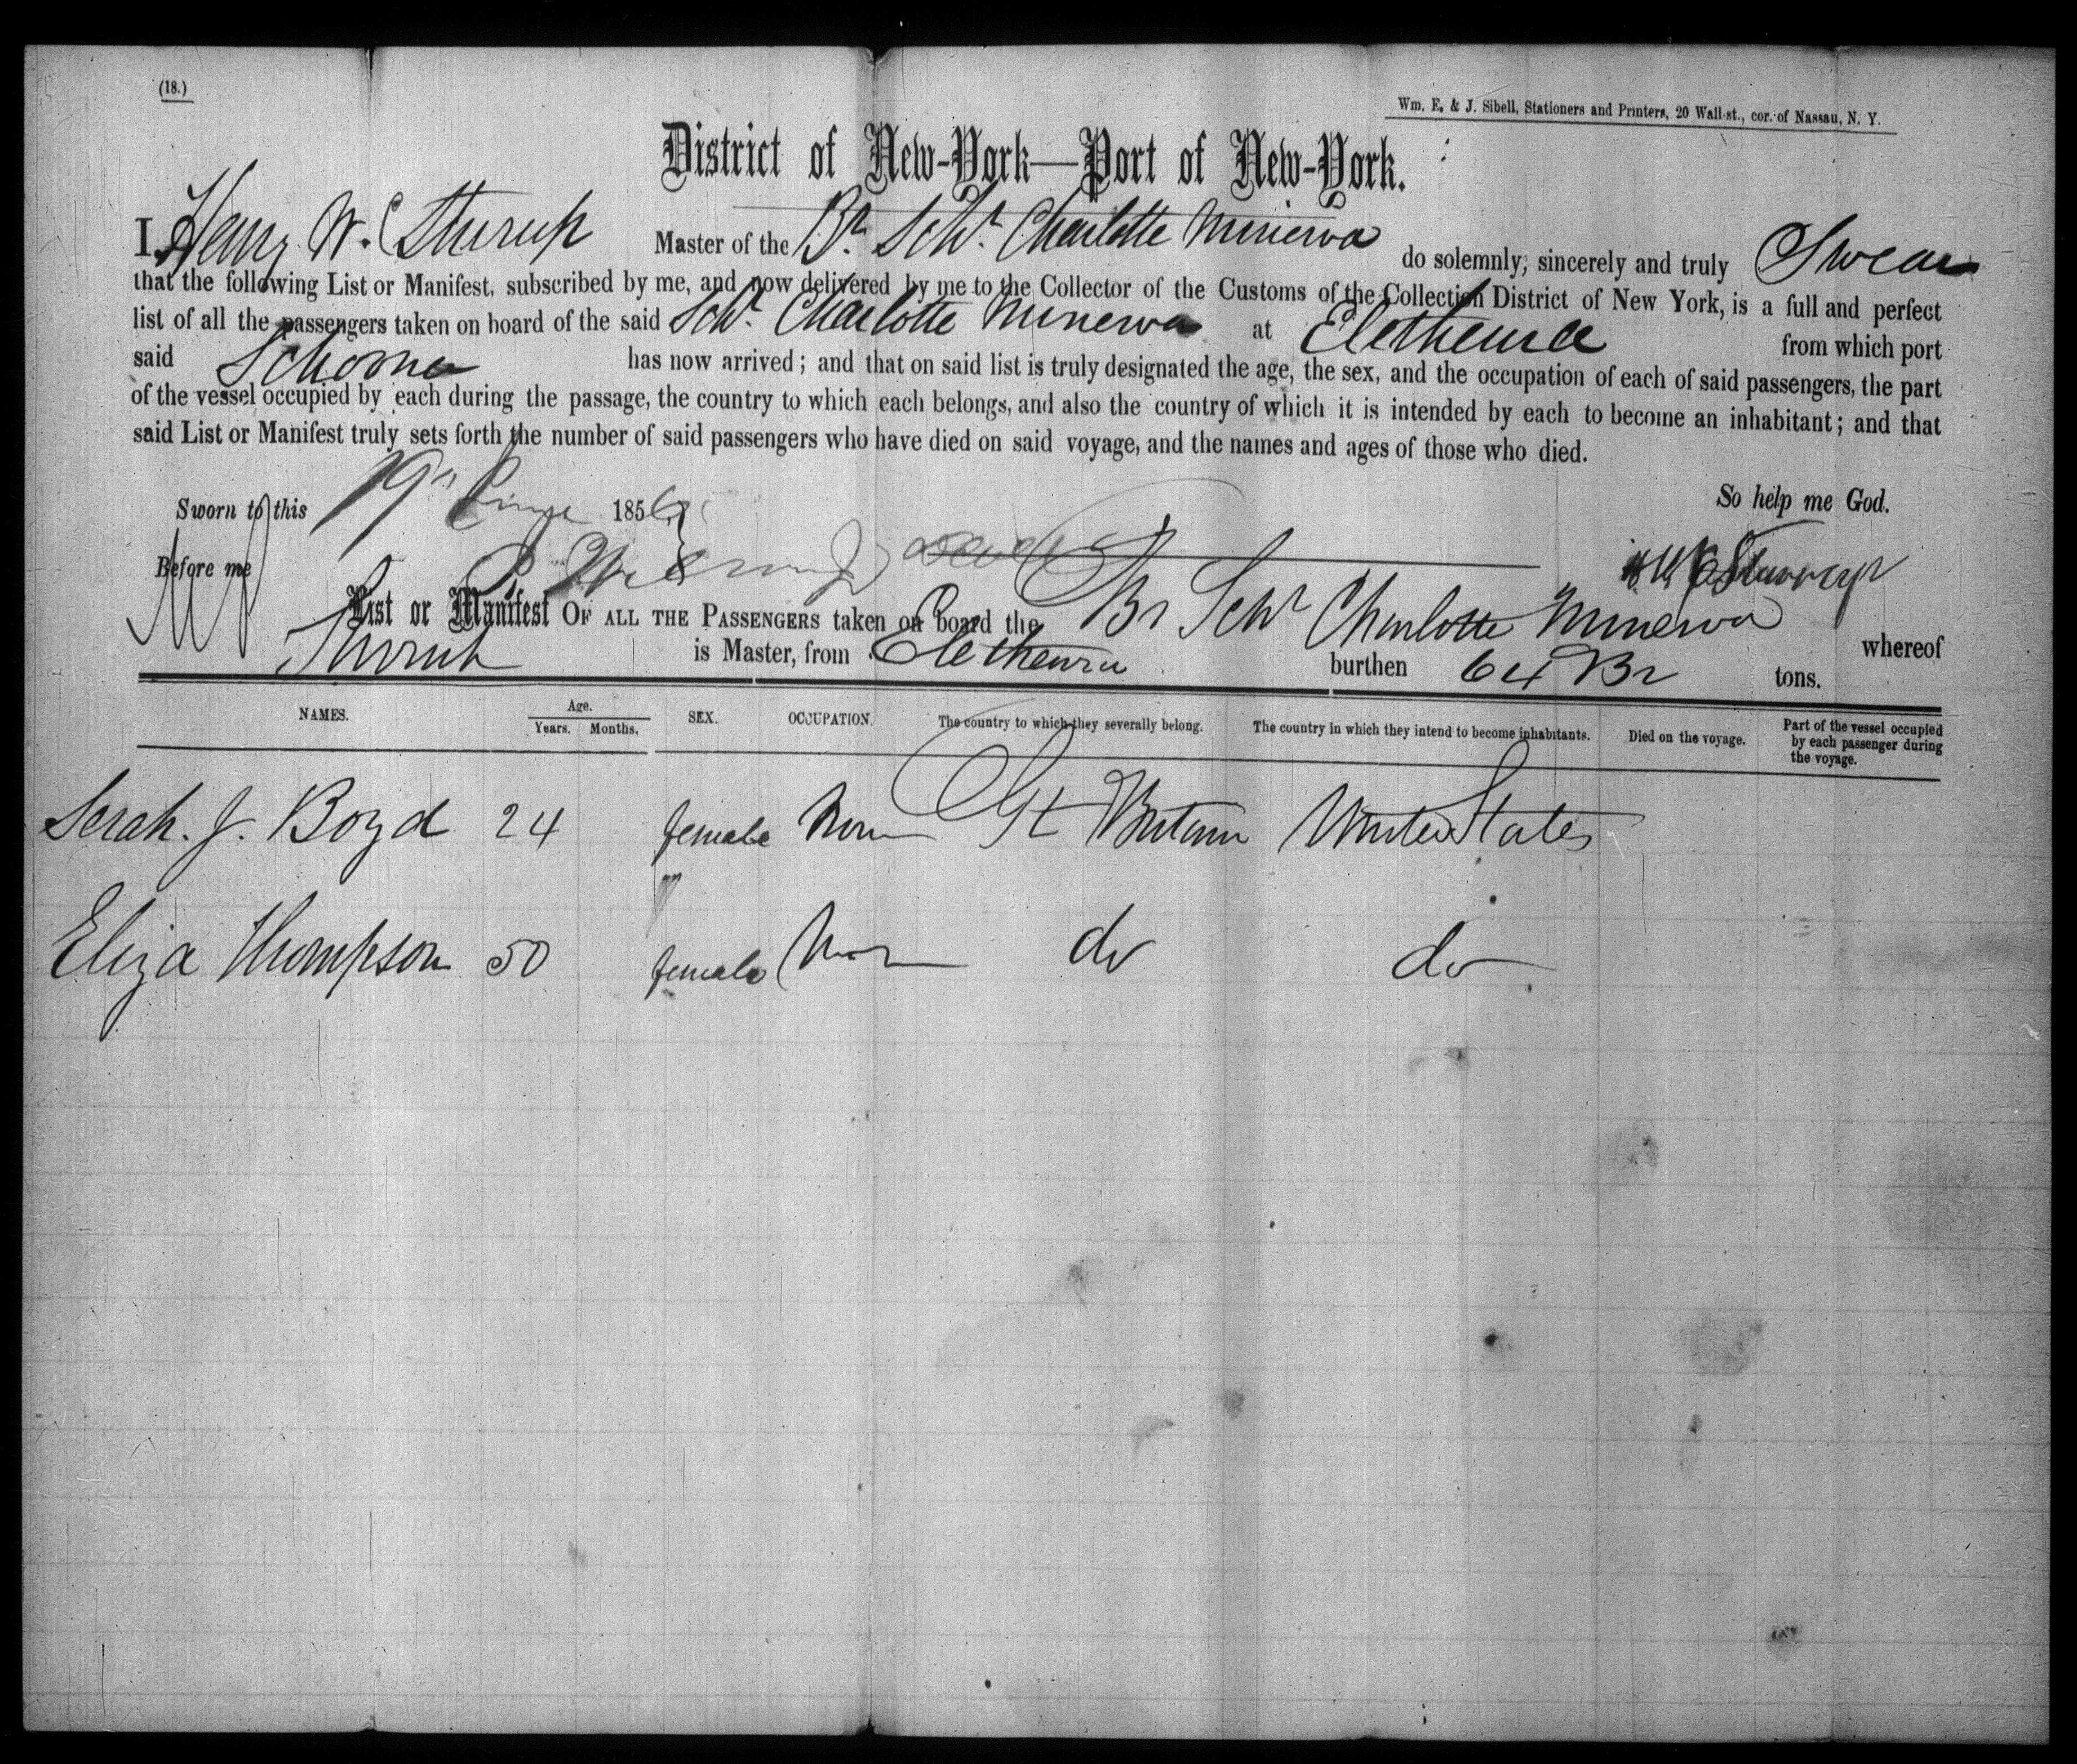 (18.)
Wm. E. & J. Sibell, Stationers and Printers, 20 Wall-st., cor. of Nassau, N. Y.
District of New-York—Port of New-York.
I, Henry W. C Sturrup Master of the Br. Schr. Charlotte Minerva do solemnly, sincerely and truly Swear
that the following List or Manifest, subscribed by me, and now delivered by me to the Collector of the Customs of the Collection District of New York, is a full and perfect
list of all the passengers taken on board of the said Schr. Charlotte Minerva at Eletheura from which port
said Schorner has now arrived; and that on said list is truly designated the age, the sex, and the occupation of each of said passengers, the part
of the vessel occupied by each during the passage, the country to which each belongs, and also the country of which it is intended by each to become an inhabitant; and that
said List or Manifest truly sets forth the number of said passengers who have died on said voyage, and the names and ages of those who died.
Sworn to this 19th June 1856 So help me God.
Before me H W C Sturrup
List or Manifest OF ALL THE PASSENGERS taken on board the Br Schr Charlotte Minerva whereof
Sturrup is Master, from Eletheura burthen 64 Br tons.
NAMES. Age. Years. Months. SEX. OCCUPATION. The country to which they severally belong. The country in which they intend to become inhabitants. Died on the voyage. Part of the vessel occupied by each passenger during the voyage.
Serah. J. Boyd 24 female Non Gt Britain United States
Eliza Thompson 50 female Non do do